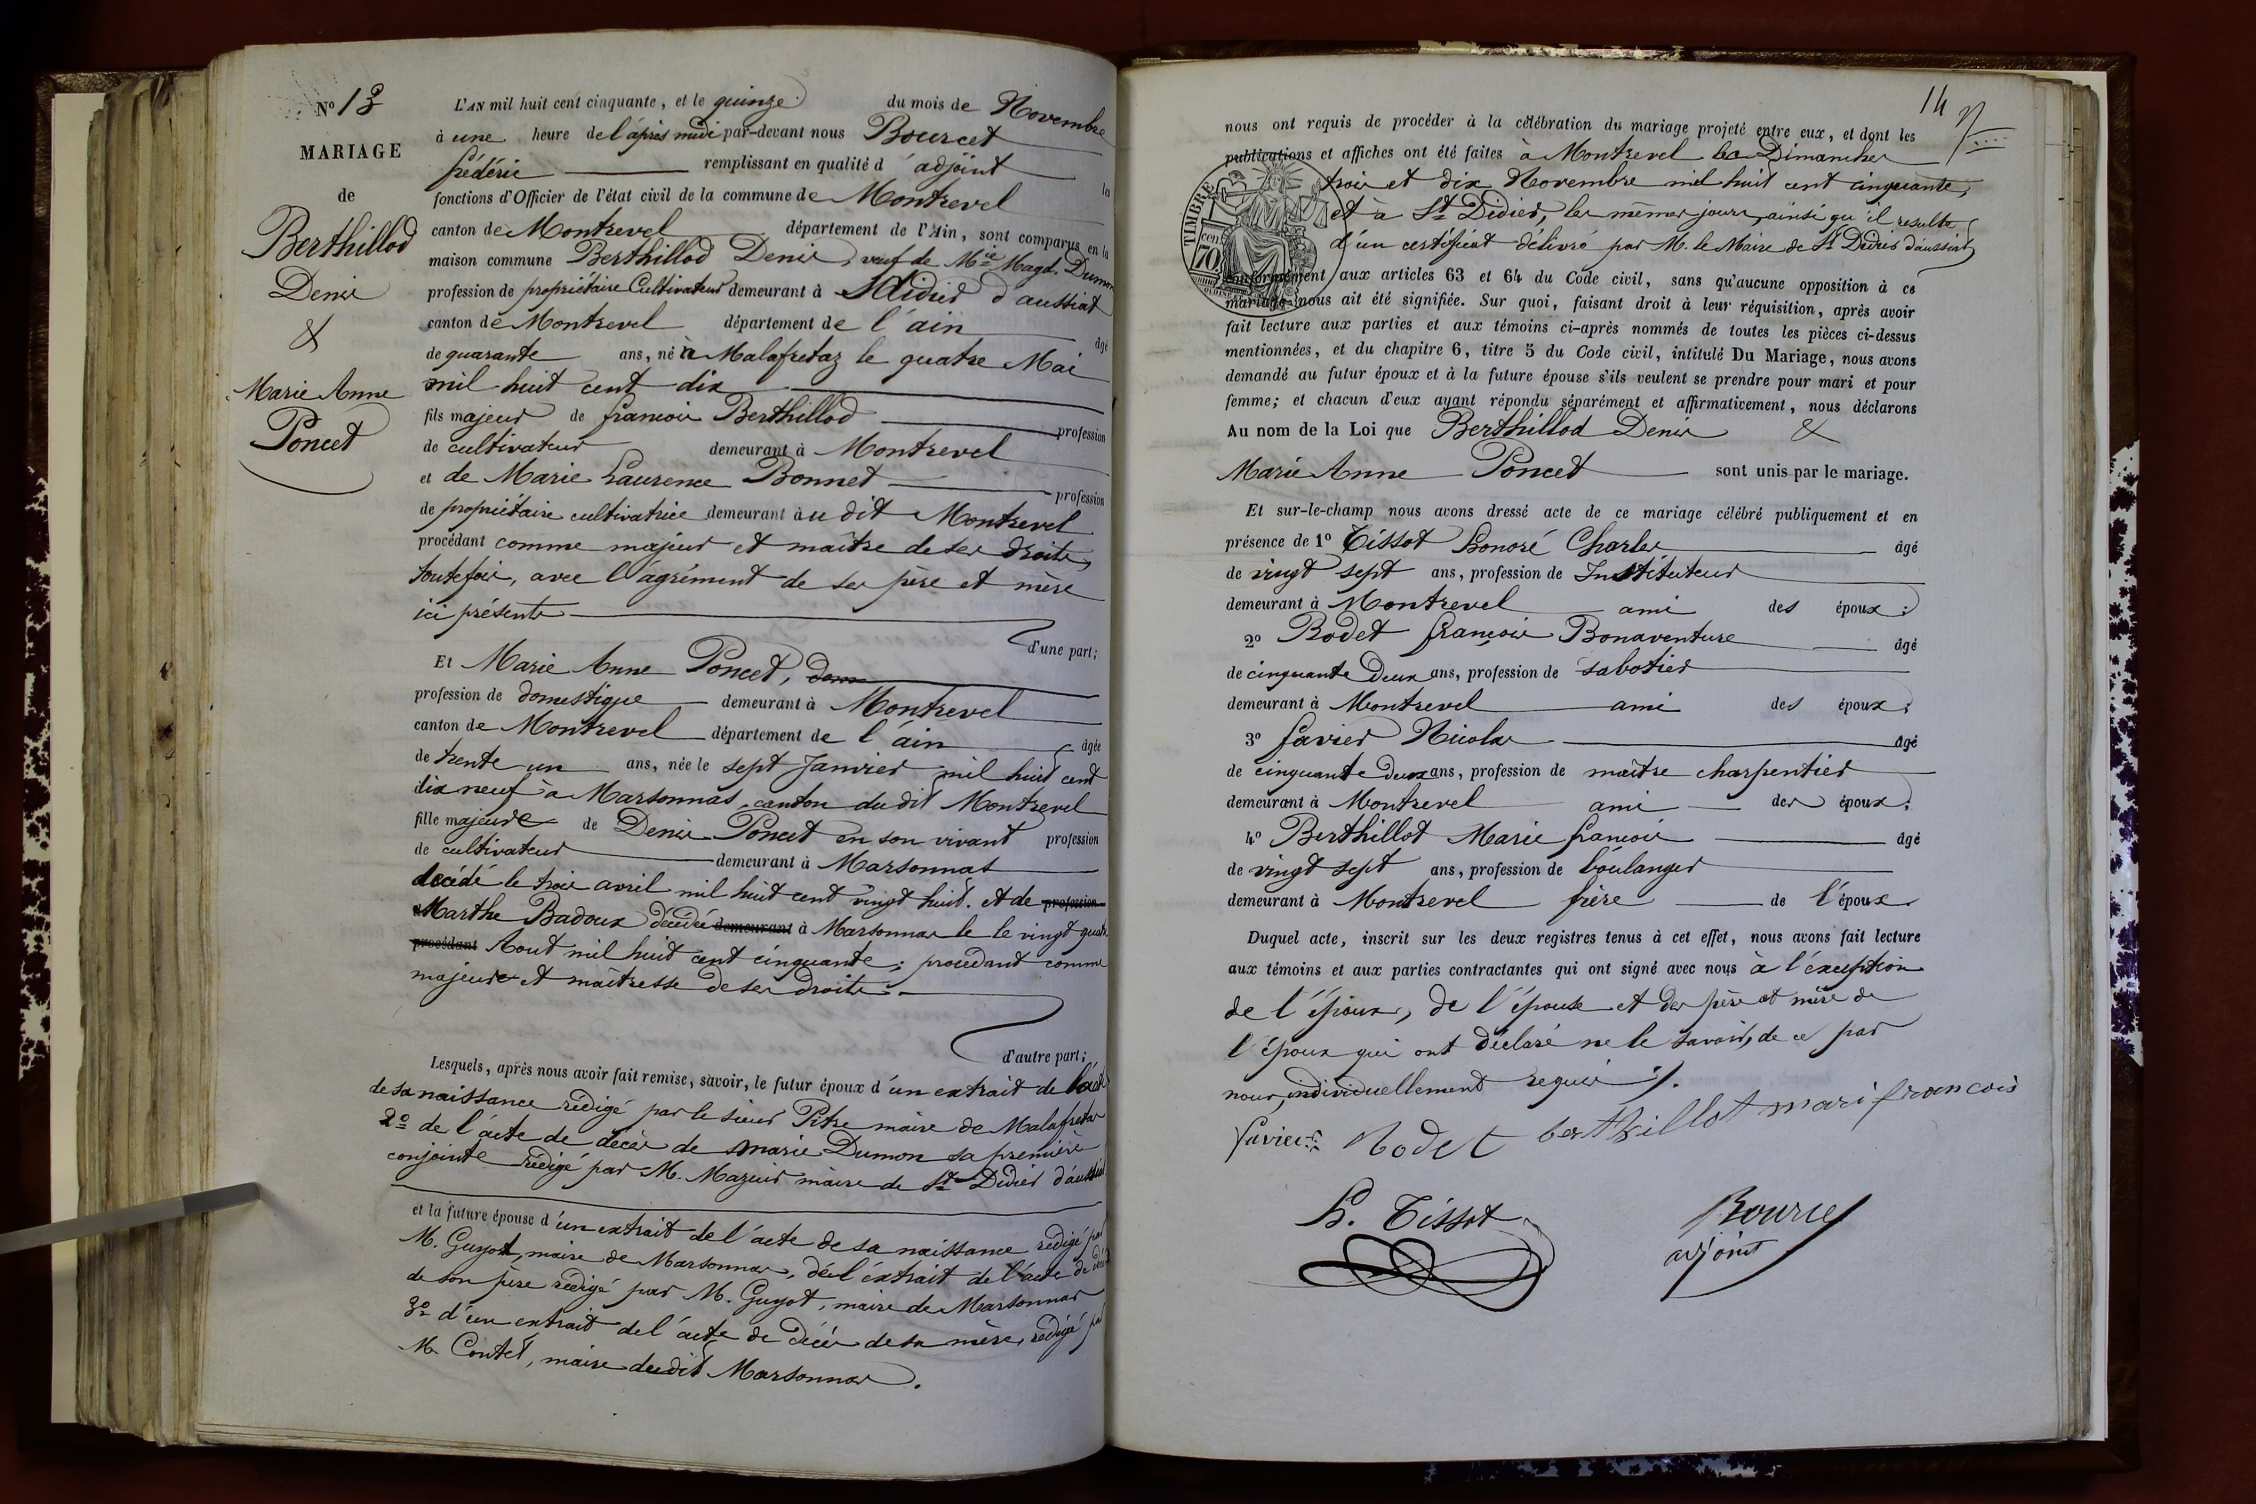 N° 13
MARIAGE
de
Berthillod
Denis
&
Marie Anne
Poncet
L'AN mil huit cent cinquante, et le quinze du mois de Novembre
à une heure de l'après midi par-devant nous Bourcet
frédéric remplissant en qualité d'adjoint la
fonctions d'Officier de l'état civil de la commune de Montrevel
canton de Montrevel département de l'Ain, sont comparus en la
maison commune Berthillod Denis, veuf de Mie Magd. Dumon
profession de propriétaire Cultivateur demeurant à St Didier d'aussiat
canton de Montrevel département de l'ain âgé
de quarante ans, né à Malafretaz le quatre Mai
mil huit cent dix
fils majeur de francois Berthillod profession
de cultivateur demeurant à Montrevel
et de Marie Laurence Bonnet profession
de propriétaire cultivatrice demeurant àu dit Montrevel
procédant comme majeur et maître de ses droits,
toutefois, avec l'agrément de ses père et mère
ici présents
d'une part;
Et Marie Anne Poncet, dom
profession de domestique demeurant à Montrevel
canton de Montrevel département de l'ain âgée
de trente un ans, née le sept Janvier mil huit cent
dix neuf a Marsonnas, canton du dit Montrevel
fille majeure de Denis Poncet en son vivant profession
de cultivateur demeurant à Marsonnas
décédé le trois avril mil huit cent vingt huit. et de profession
Marthe Badoux décédée demeurant à Marsonnas le le vingt quatre
procédant Aout mil huit cent cinquante; procedant comme
majeure et maîtresse de ses droits.
d'autre part;
Lesquels, après nous avoir fait remise, savoir, le futur époux d'un extrait de l'acte
de sa naissance rédigé par le sieur Pitre maire de Malafretaz
2° de l'acte de décès de marie Dumon sa première
conjointe rédigé par M. Mazuir maire de St Didier d'aussiat
et la future épouse d'un extrait de l'acte de sa naissance redigé par
M. Guyot, maire de Marsonnas, de l'éxtrait de l'acte de décès
de son père rédigé par M. Guyot, maire de Marsonnas
3° d'un extrait de l'acte de décès de sa mère, redigé par
M. Contet, maire dudit Marsonnas.
14
nous ont requis de procéder à la célébration du mariage projeté entre eux, et dont les
publications et affiches ont été faites à Montrevel les Dimanches
trois et dix Novembre mil huit cent cinquante,
et à St Didier, les mêmes jours, ainsi qu'il resulte
d'un certificat délivré par M. le Maire de St Didier d'aussiat,
TIMBRE
70
conformément aux articles 63 et 64 du Code civil, sans qu'aucune opposition à ce
mariage nous ait été signifiée. Sur quoi, faisant droit à leur réquisition, après avoir
fait lecture aux parties et aux témoins ci-après nommés de toutes les pièces ci-dessus
mentionnées, et du chapitre 6, titre 5 du Code civil, intitulé Du Mariage, nous avons
demandé au futur époux et à la future épouse s'ils veulent se prendre pour mari et pour
femme; et chacun d'eux ayant répondu séparément et affirmativement, nous déclarons
Au nom de la Loi que Berthillod Denis &
Marie Anne Poncet sont unis par le mariage.
Et sur-le-champ nous avons dressé acte de ce mariage célébré publiquement et en
présence de 1° Tissot honoré Charles âgé
de vingt sept ans, profession de Instituteur
demeurant à Montrevel ami des époux;
2° Rodet françois Bonaventure âgé
de cinquante Deux ans, profession de sabotier
demeurant à Montrevel ami des époux;
3° favier Nicolas âgé
de cinquante deux ans, profession de maître charpentier
demeurant à Montrevel ami des époux;
4° Berthillot Marie francois âgé
de vingt sept ans, profession de boulanger
demeurant à Montrevel frère de l'époux
Duquel acte, inscrit sur les deux registres tenus à cet effet, nous avons fait lecture
aux témoins et aux parties contractantes qui ont signé avec nous à l'exception
de l'époux, de l'épouse et des père et mère de
l'époux qui ont déclaré ne le savoir, de ce par
nous, individuellement requis ./.
favier Rodet berthillot mari francois
h. Tissot
Bource
adjoint